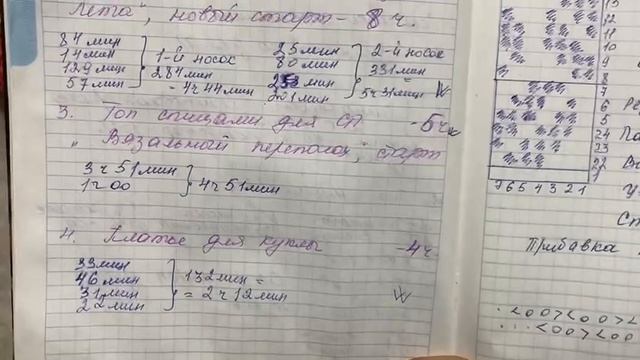 Лета", новый старт - 8 ч.
84 мин
14 мин
129 мин
57 мин
1-й носок
284 мин
- 4ч 44 мин
25 мин
80 мин
мин
мин
2-й носок
331 мин
=
5ч 31 мин
3. Топ спицами для СП - 5ч
"Вязальный переполох", старт
3 ч 51 мин
1ч 00
4ч 51 мин
4. Платье для куклы - 4ч.
33 мин
46 мин
31 мин
22 мин
132 мин =
= 2ч 12 мин
13
12
11
10
9
8
7
6
5
24
23
22
1
7 6 5 4 3 2 1
Прибавка